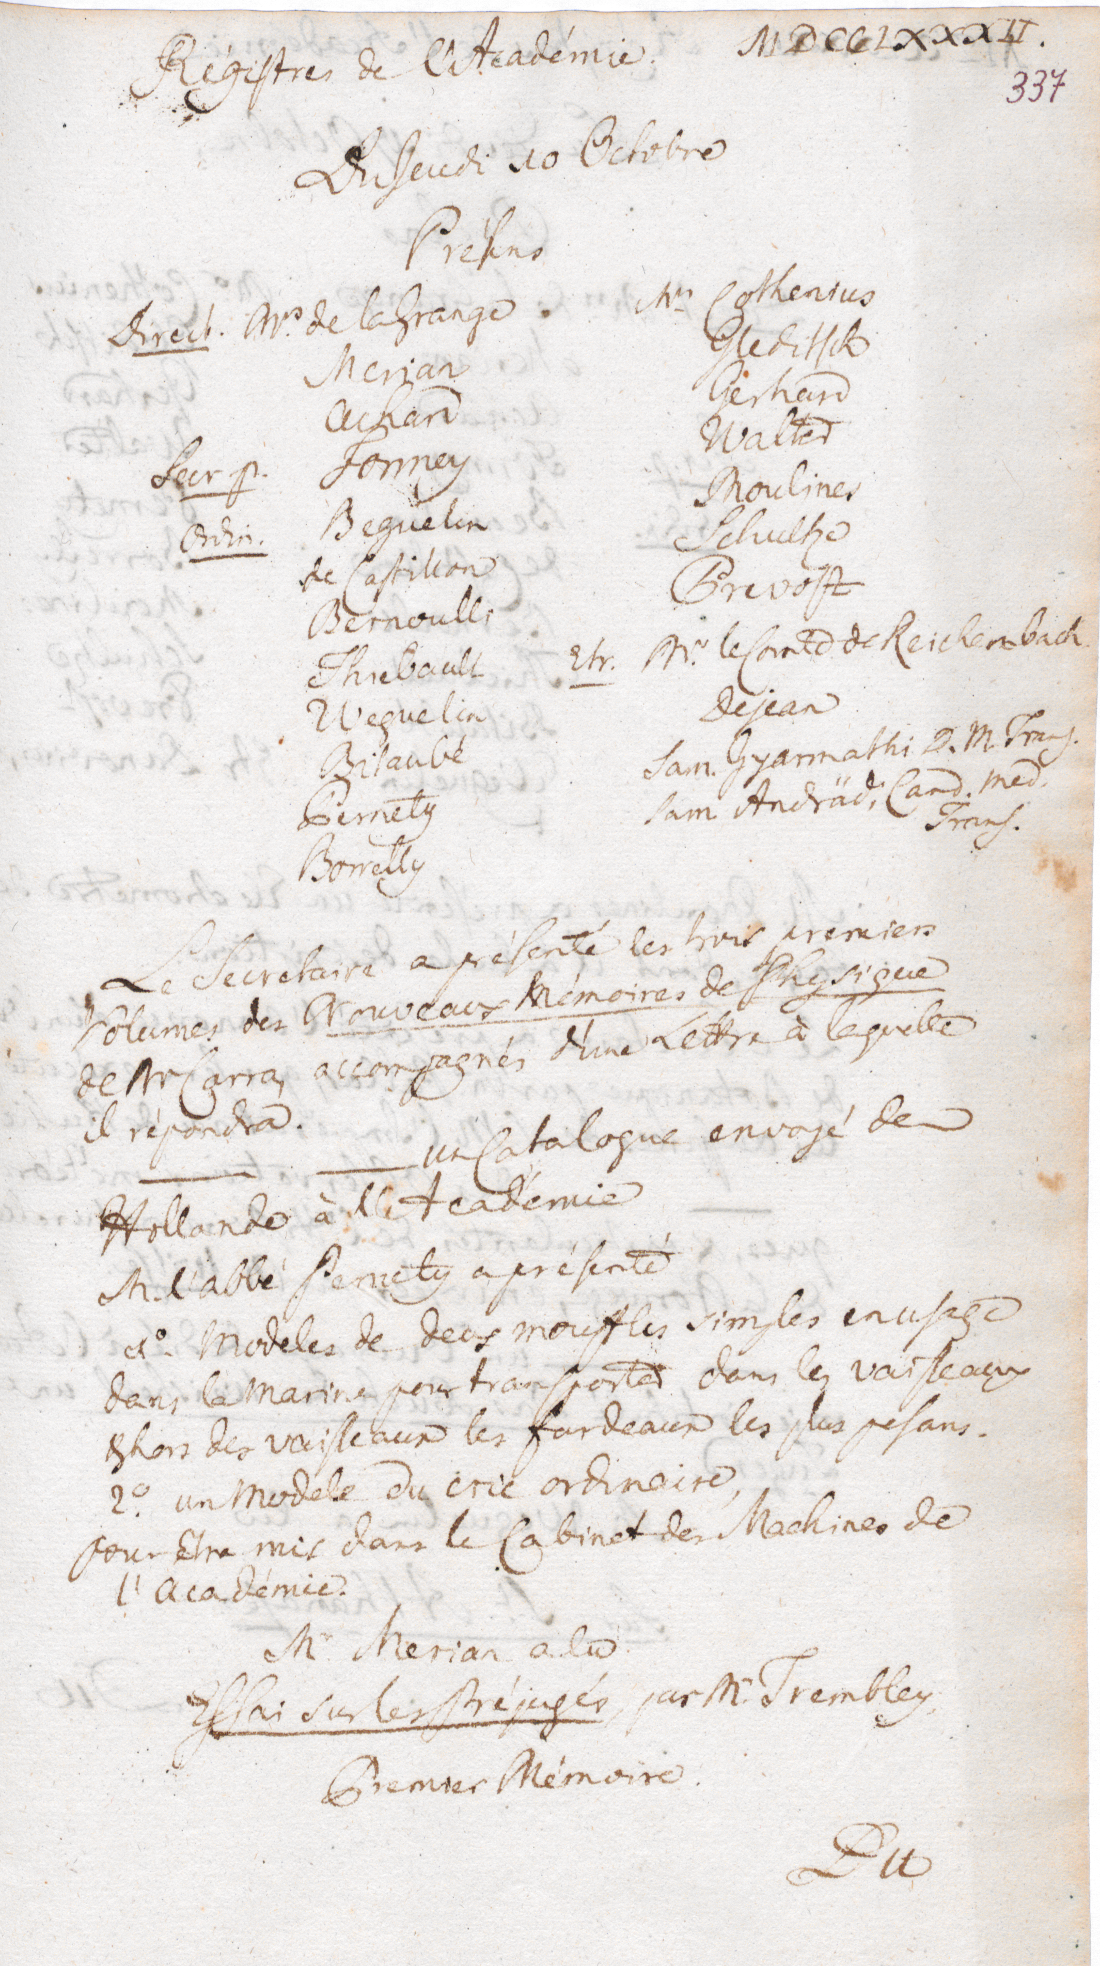 Régistres de l'Académie.
MDCCLXXXII.
337
Du Jeudi 10 Octobre
Présens
Direct. Mrs de la Grange
Merian
Achard
Secr. p. Formey
Ordin. Beguelin
de Castillon
Bernoulli
Thiebault
Weguelin
Bitaubé
Pernety
Borrelly
Mrs Cothenius
Gleditsch
Gerhard
Walter
Moulines
Schultze
Prevost
Etr. Mrs le Comte de Reichenbach
Dejean
Sam. Gyarmathi D. M. Trans.
Sam Andräd, Cand. Med.
Trans.
Le Secretaire a présenté les trois premiers
Volumes des Nouveaux Mémoires de Physique
de Mr Carra, accompagnés d'une Lettre à laquelle
il répondra.
un Catalogue envoyé de
Hollande à l'Académie
M. l'abbé Pernety a présenté
1o. Modeles de deux mouffles simples en usage
dans la Marine pour transporter dans les vaisseaux
& hors des vaisseaux les fardeaux les plus pesans.
2o. un Modele du cric ordinaire,
pour être mis dans le Cabinet des Machines de
l'Académie.
Mr Merian a lu
Essai sur les Préjugés, par Mr. Trembley,
Premier Mémoire.
Du